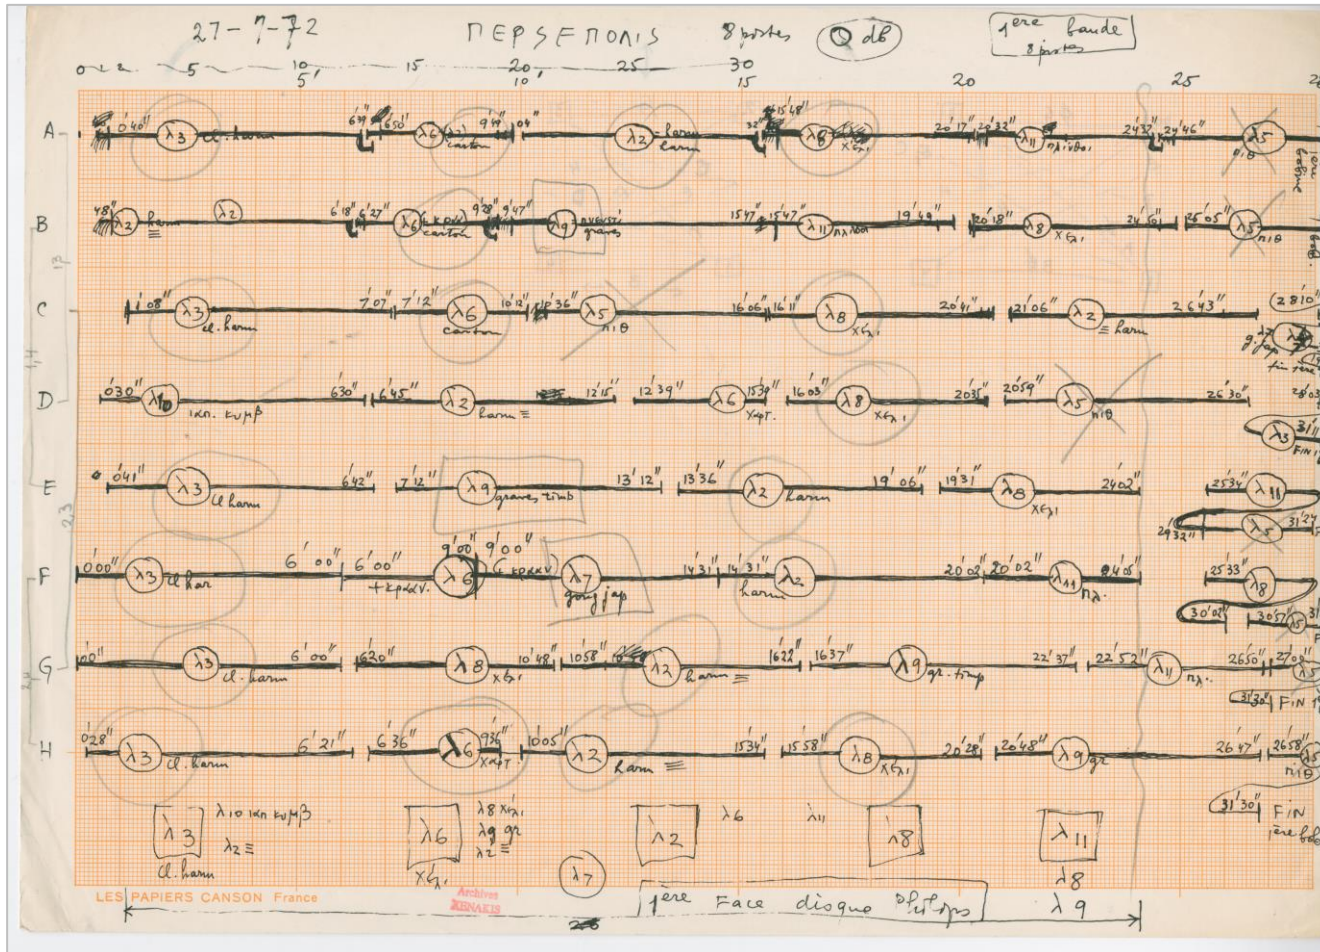 27-7-72 ΠΕΡΣΕΠΟΛΙΣ 8 postes dB 1ère bande
8 postes
0 1 2 5 10 15 20 25 30
5' 10' 15 20 25
A 0'40" λ3 cl. harm 6'39" 6'50" λ6 carton 9'49" 04" λ2 harm 32" 15'48" λ8 χελι 20'17" 20'32" λ11 πλίνθοι 24'37" 24'46" λ5 πιθ
harm
B 48" λ2 harm λ2 6'18" 6'27" λ6 (+κραν) 9'28" 9'47" λ9 15'47" 15'47" λ11 19'49" 20'18" λ8 χελι 24'50" 25'05" λ5 πιθ
≡ carton graves
C 1'08" λ3 cl. harm 7'07" 7'12" λ6 carton 10'12" 10'36" λ5 πιθ 16'06" 16'11" λ8 χελι 20'41" 21'06" λ2 ≡ harm 26'43" 28'10"
g. jap
D 0'30" λ10 ιαπ. κυμβ 6'30" 6'45" λ2 harm ≡ 12'15" 12'39" λ6 χαρτ. 15'39" 16'03" λ8 χελι 20'35" 20'59" λ5 πιθ 26'30" 28'03"
λ3 31'11
FIN
E 0'41" λ3 cl harm 6'42" 7'12" λ9 graves timp 13'12" 13'36" λ2 harm 19'06" 19'31" λ8 χελι 24'02" 25'34" λ11
29'32" λ5 31'27
F 0'00" λ3 cl har 6'00" 6'00" +κραν. λ6 9'00" 9'00" (+κραν) λ7 gong jap 14'31" 14'31" λ2 harm 20'02 20'02" λ11 πλ. 24'05" 25'33" λ8
30'02" 30'57" λ5
G 00" λ3 cl. harm 6'00" 6'20" λ8 χελι 10'48" 10'58" λ2 harm ≡ 16'22" 16'37" λ9 gr. timp 22'37" 22'52" λ11 πλ. 26'50" 27'00" λ5
31'30" FIN
H 0'28" λ3 cl. harm 6'21" 6'36" λ6 χαρτ. 9'36" 10'05" λ2 harm ≡ 15'34" 15'58" λ8 χελι 20'28" 20'48" λ9 gr 26'47" 26'58" λ5 πιθ
31'30" FIN
1ère bob
λ3 λ10 ιαπ κυμβ λ6 λ8 χελι λ2 λ6 λ11 λ8 λ11
λ2 ≡ λ9 gr
λ2 ≡
cl. harm χελι λ7 λ8
LES PAPIERS CANSON France Archives
XENAKIS 1ère Face disque Philips λ9